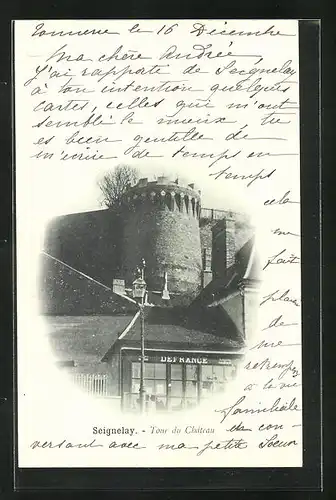 Tonnerre le 16 Décembre
Ma chère Andrée
J'ai rapporté de Seignelay
à ton intention quelques
cartes, celles qui m'ont
semblé le mieux, tu
es bien gentille de
m'écrire de temps en
temps
cela
me
fait
plaisir
de
me
retremper
à la vie
familiale
en con-
versant avec ma petite Soeur
DEFRANCE
Seignelay. - Tour du Château